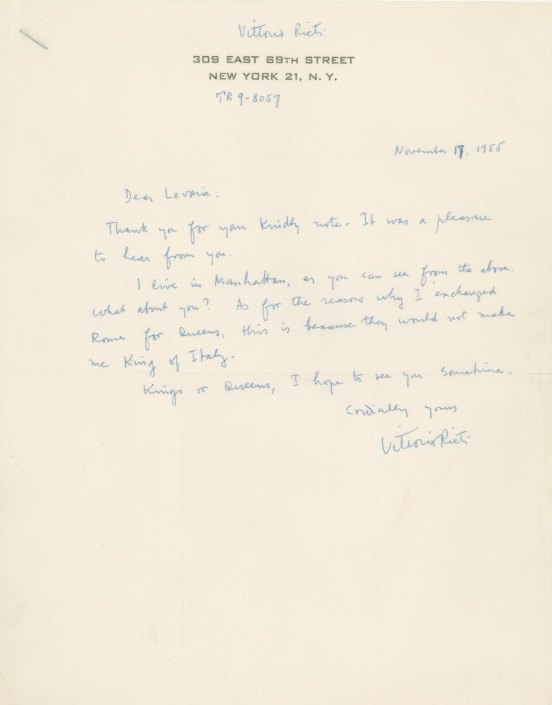 Vittorio Rieti
309 EAST 69TH STREET
NEW YORK 21, N. Y.
TR 9-8057
November 17, 1955
Dear Levarie:
Thank you for your kindly note. It was a pleasure
to hear from you.
I live in Manhattan, as you can see from the above.
What about you? As for the reasons why I exchanged
Rome for Queens, this is because they would not make
me King of Italy.
Kings or Queens, I hope to see you sometime.
Cordially yours
Vittorio Rieti